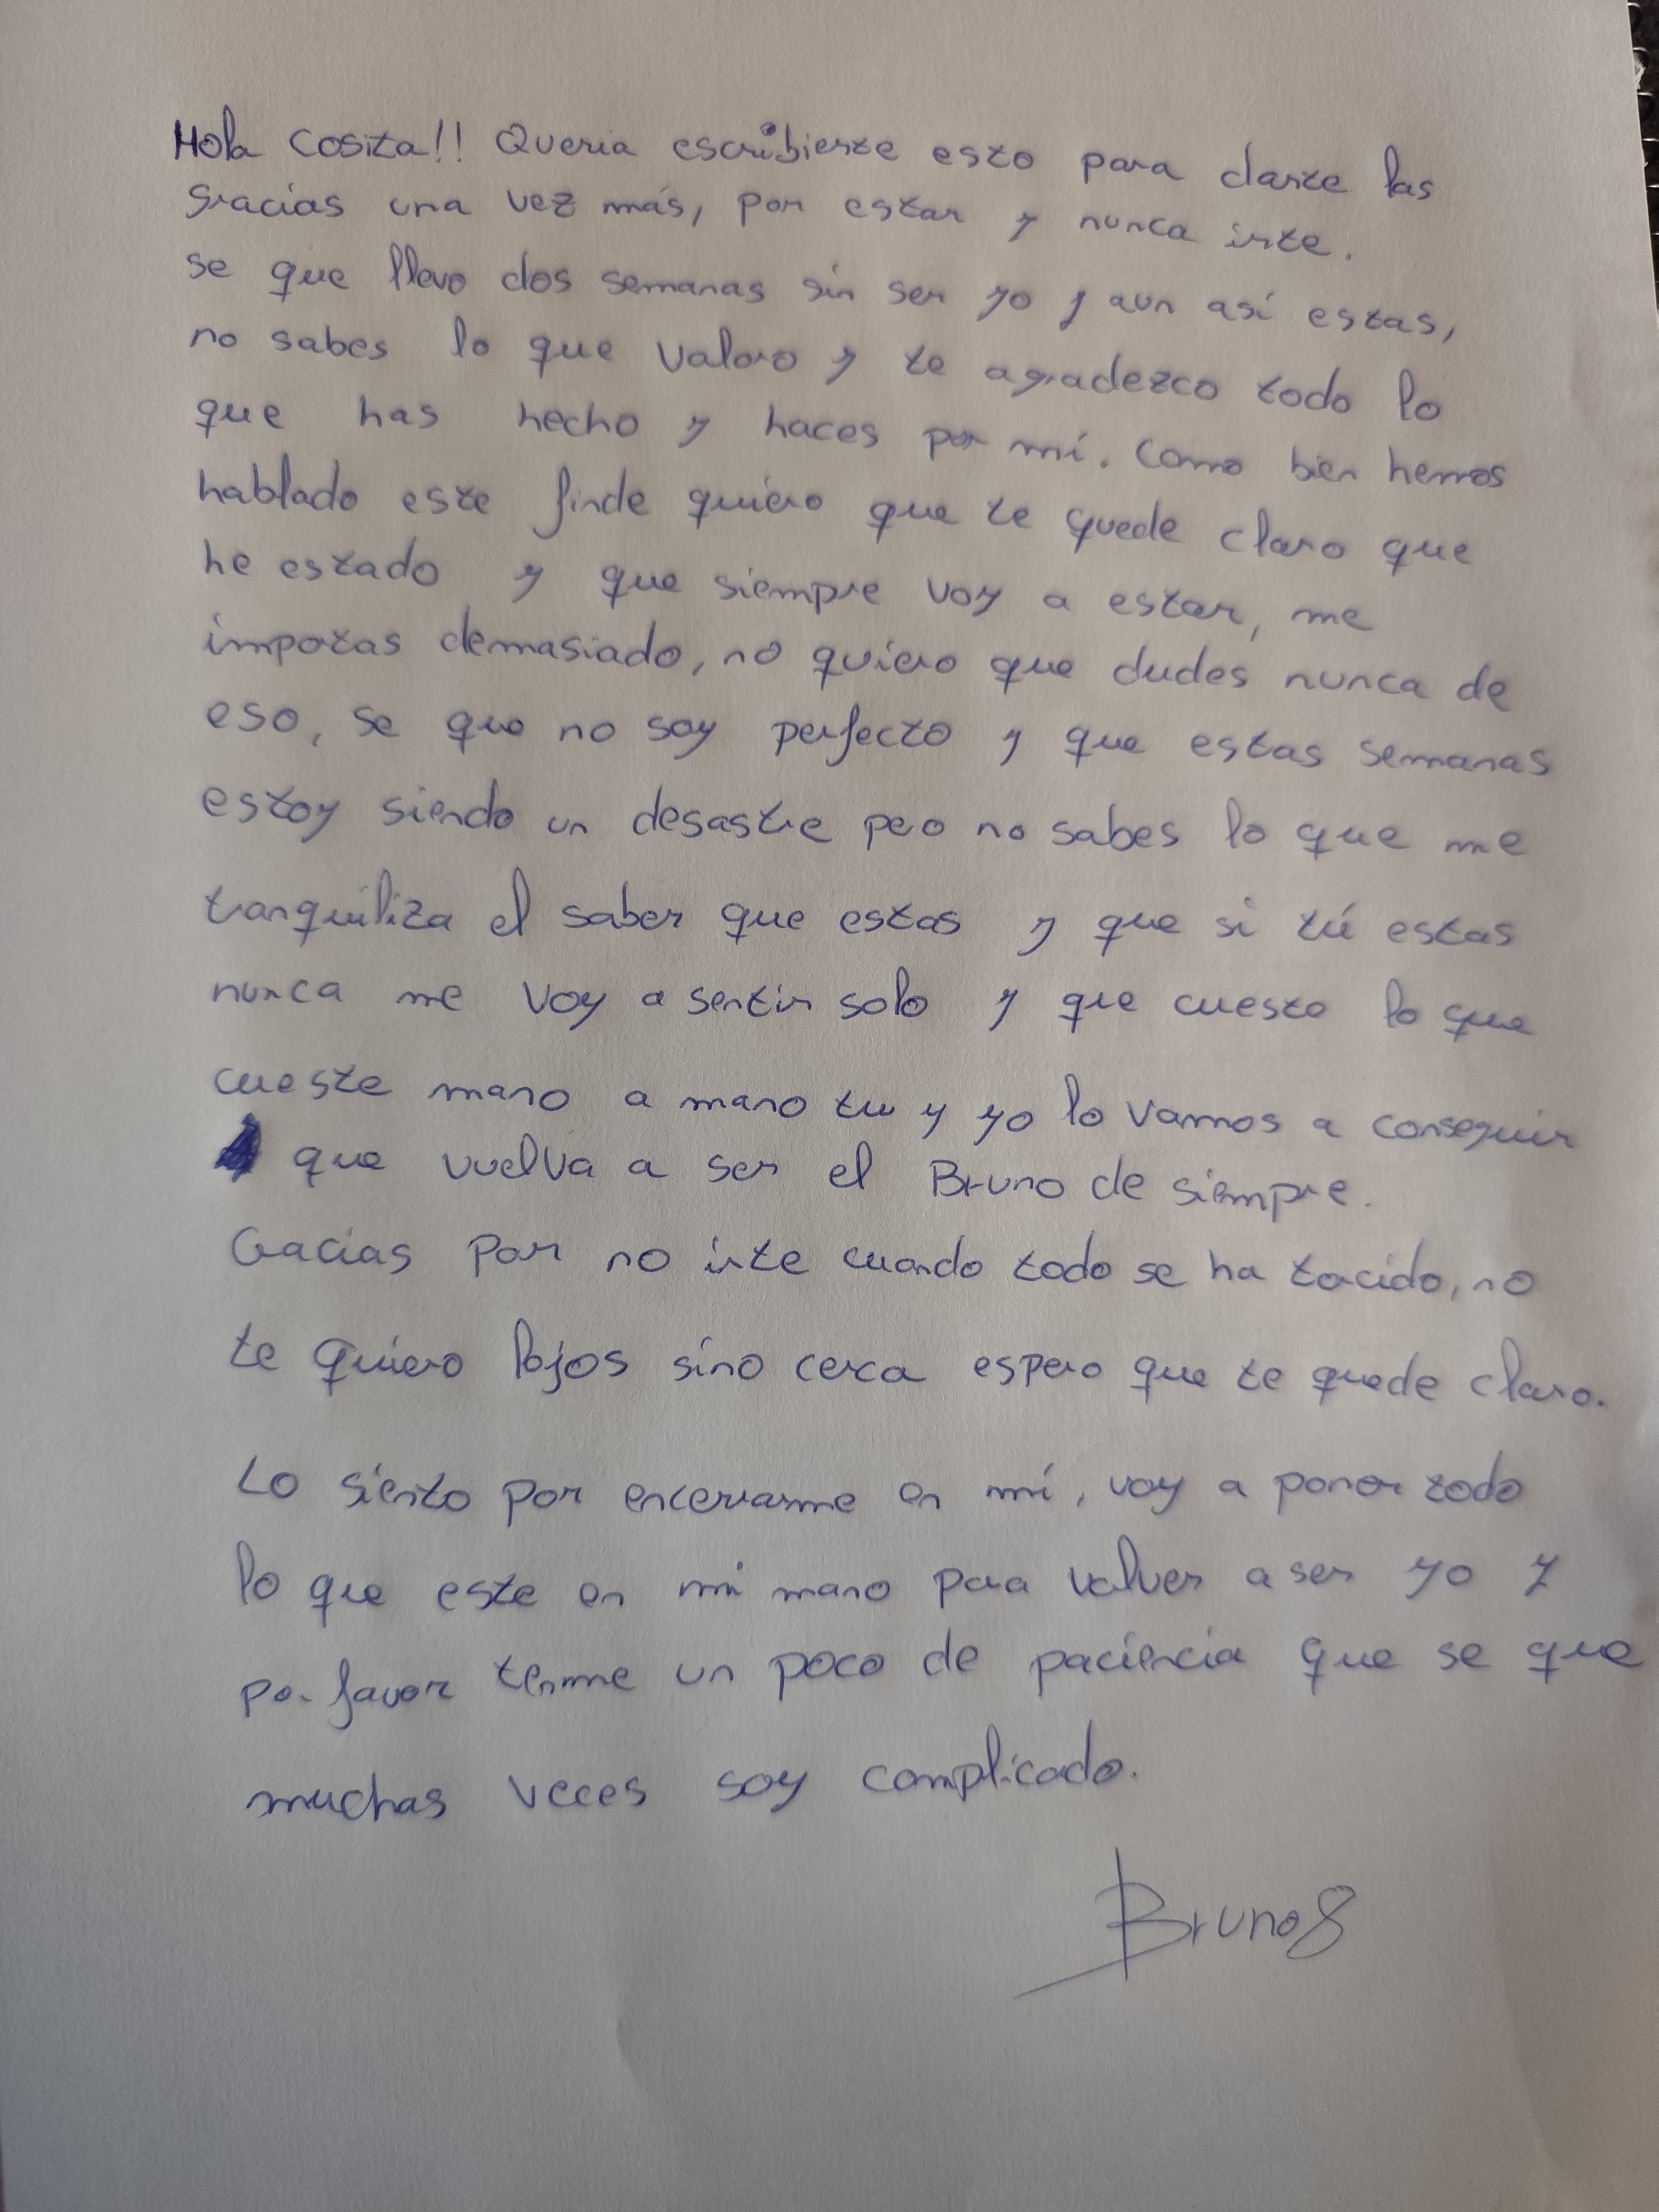 Hola Cosita!! Queria escribierte esto para darte las
gracias una vez más, por estar y nunca irte.
se que llevo dos semanas sin ser yo y aun así estas,
no sabes lo que valoro y te agradezco todo lo
que has hecho y haces por mí. Como bien hemos
hablado este finde quiero que te quede claro que
he estado y que siempre voy a estar, me
impotas demasiado, no quiero que dudes nunca de
eso, se que no soy perfecto y que estas semanas
estoy siendo un desastre pero no sabes lo que me
tranquiliza el saber que estas y que si tú estas
nunca me voy a sentir solo y que cueste lo que
cueste mano a mano tu y yo lo vamos a conseguir
que vuelva a ser el Bruno de siempre.
Gracias por no irte cuando todo se ha torcido, no
te quiero lejos sino cerca espero que te quede claro.
Lo siento por encerrarme en mí, voy a poner todo
lo que este en mi mano para volver a ser yo y
por favor tenme un poco de paciencia que se que
muchas veces soy complicado.
Bruno8